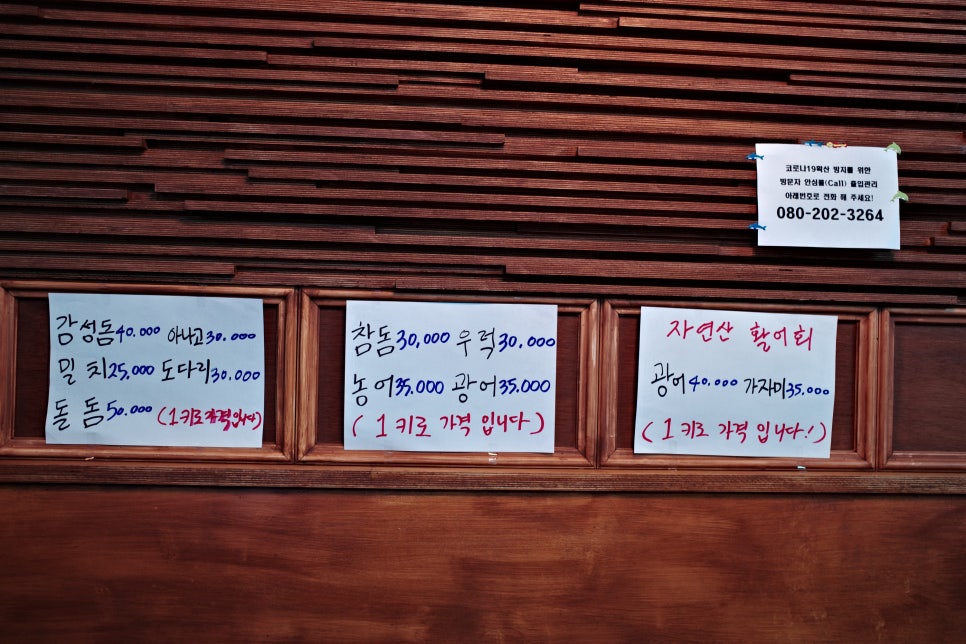 코로나19확산 방지를 위한
방문자 안심콜(Call) 출입관리
아래번호로 전화 해 주세요!
080-202-3264
감성돔40.000 아나고30.000
밀치25,000 도다리30.000
돌돔50.000 (1키로가격입니다)
참돔30,000 우럭30.000
농어35.000 광어35.000
(1키로 가격 입니다)
자연산 활어회
광어40.000 가자미35.000
(1키로 가격 입니다!)